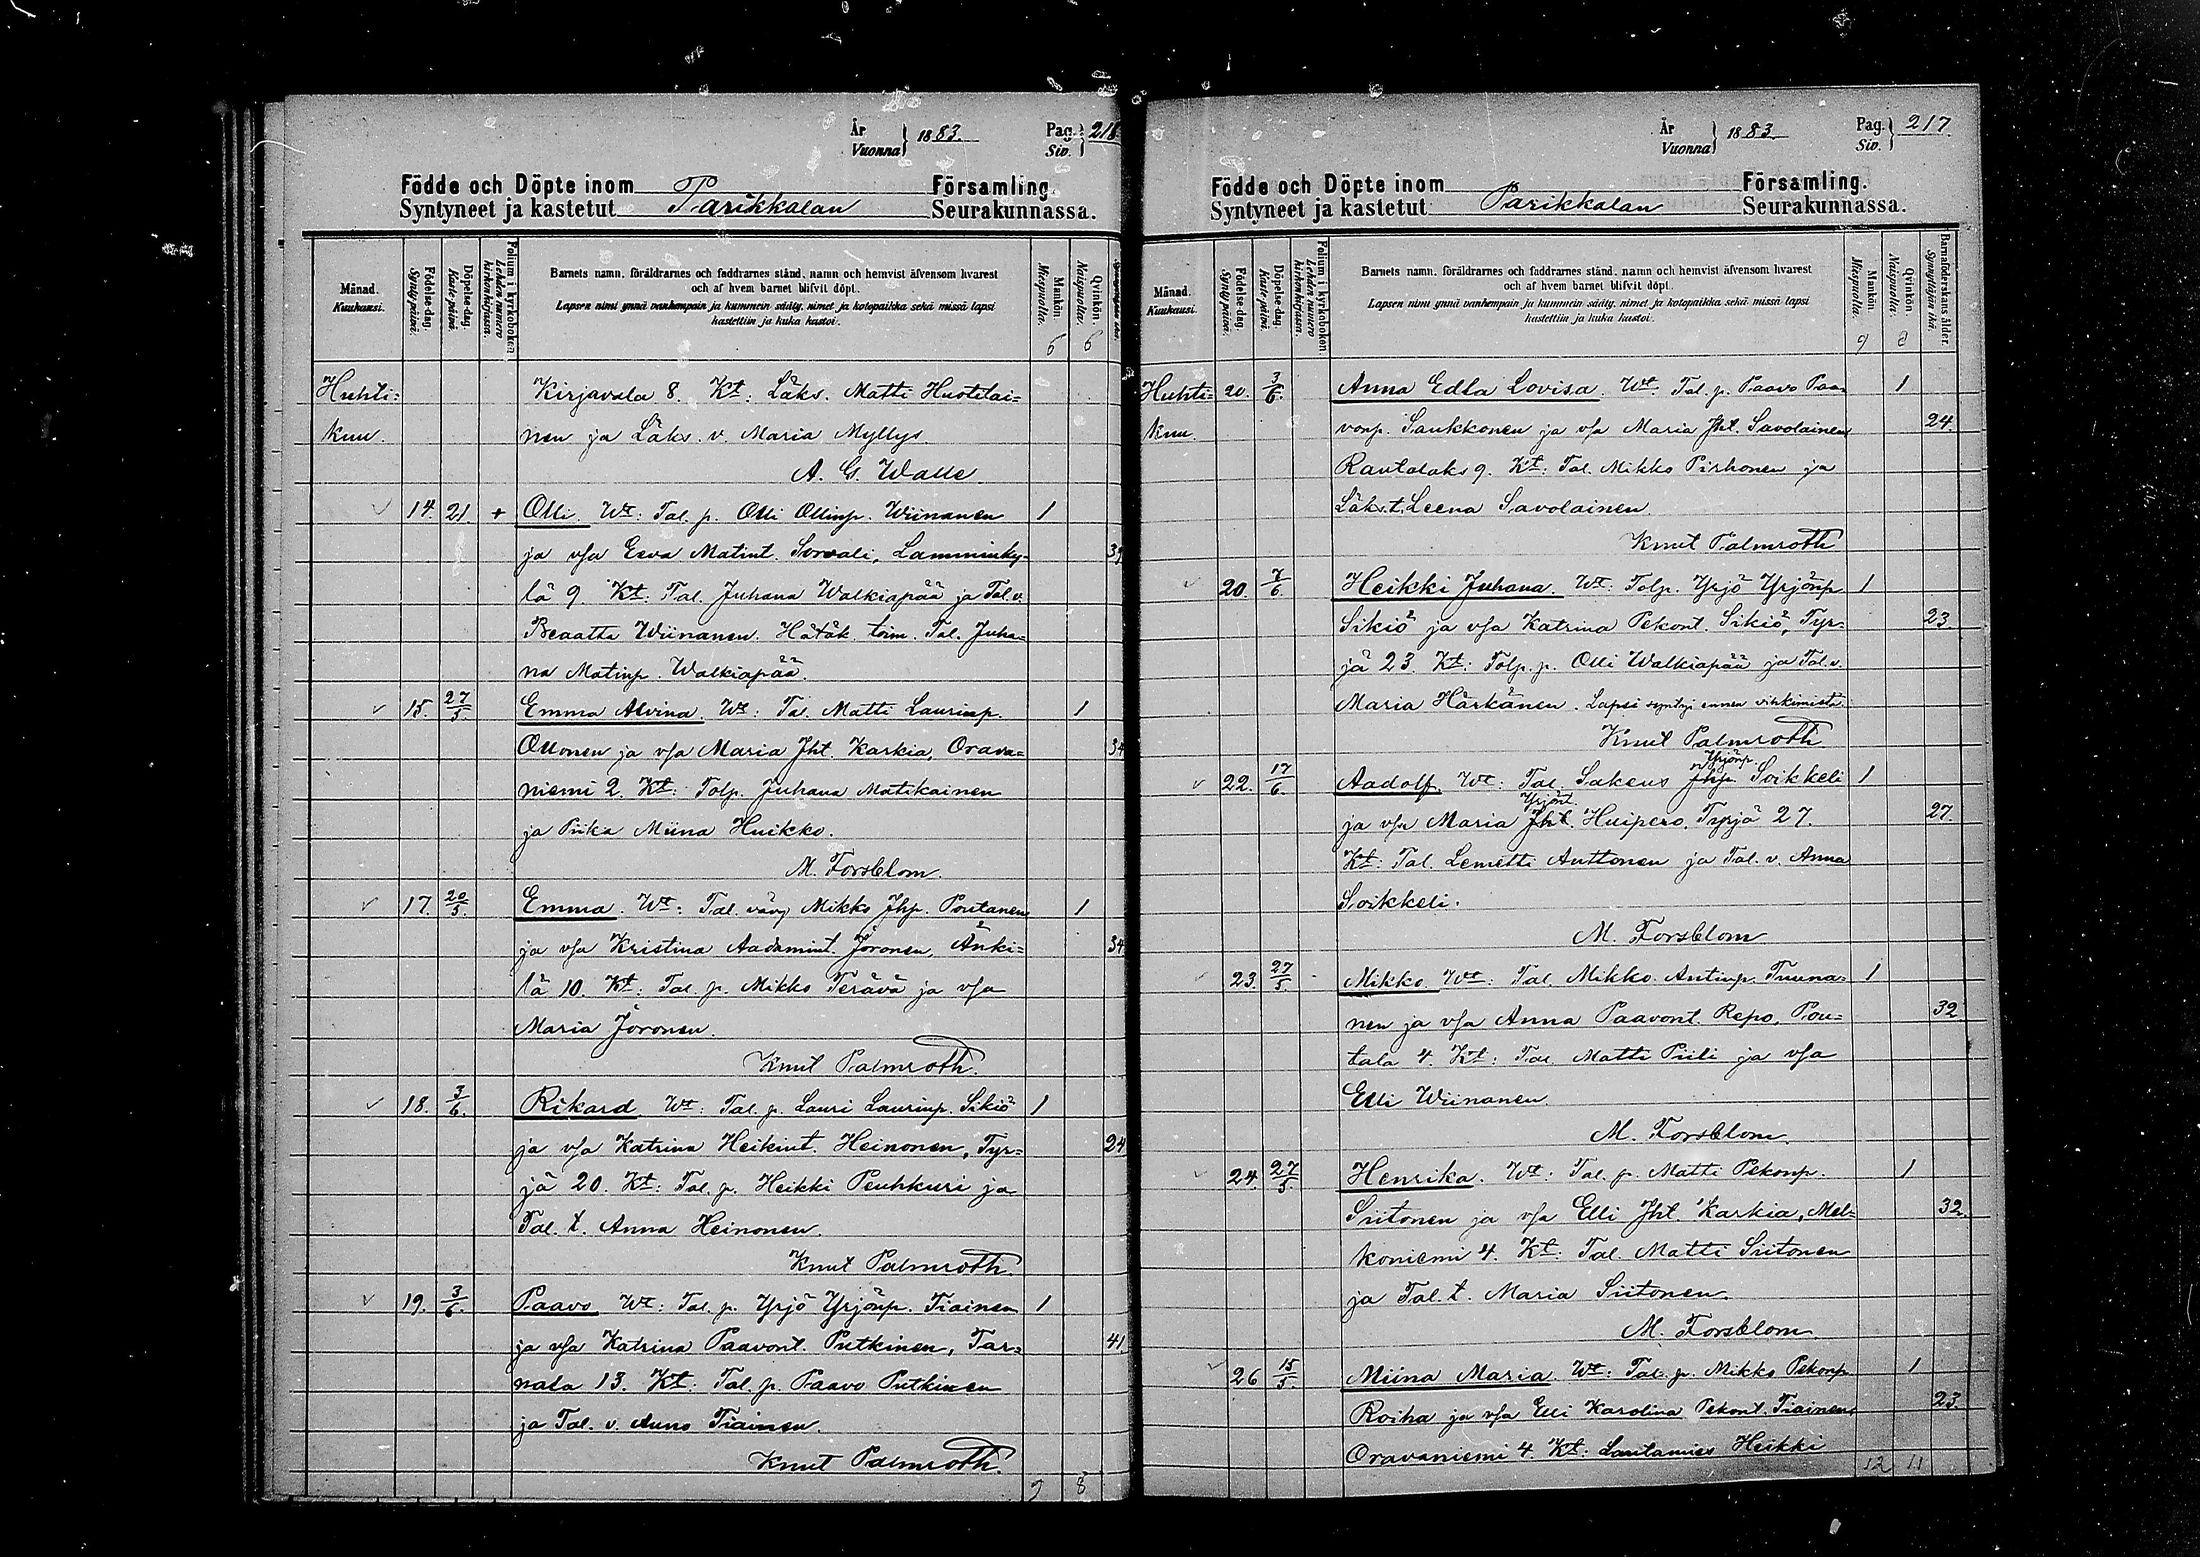 År
Vuonna } 1883.
Pag.
Siv. } 216
Födde och Döpte inom Parikkalan Församling.
Syntyneet ja kastetut Seurakunnassa.
Månad.
Kuukausi.
Födelse-dag.
Synty-päivä.
Döpelse-dag.
Kaste-päivä.
Folium i kyrkoboken
Lehden numero kirkonkirjassa.
Barnets namn, föräldrarnes och faddrarnes stånd, namn och hemvist äfvensom hvarest
och af hvem barnet blifvit döpt.
Lapsen nimi ynnä vanhempain ja kummein sääty, nimet ja kotopaikka sekä missä lapsi
kastettiin ja kuka kastoi.
Mankön
Miespuolia.
Qvinkön.
Naispuolia.
6 6
Huhti= Kirjavala 8. Kt: Läks. Matti Huotilai=
kuu. nen ja Läks. v. Maria Myllys.
A. G. Walle
14. 21. + Olli Wt: Tal. p. Olli Ollinp. Wiinanen 1
ja vsa Eeva Matint. Sorvali, Lamminky= 39
lä 9. Kt: Tal. Juhana Walkiapää ja Tal. v.
Beaatta Wiinanen. Hätäk. toim. Tal. Juha=
na Matinp. Walkiapää.
15. 27/5. Emma Alvina. Wt: Tal. Matti Laurinp. 1
Ollonen ja vsa Maria Jht. Karkia, Orava= 34
niemi 2. Kt: Tolp. Juhana Matikainen
ja Piika Miina Huikko.
M. Forsblom.
17. 20/5. Emma. Wt: Tal. vävy Mikko Jhp. Poutanen 1
ja vsa Kristina Aadamint. Joronen, Änki= 34
lä 10. Kt: Tal. p. Mikko Terävä ja vsa
Maria Joronen.
Knut Palmroth.
18. 3/6. Rikard Wt: Tal. p. Lauri Laurinp. Sikiö 1
ja vsa Katrina Heikint. Heinonen, Tyr= 24
jä 20. Kt: Tal. p. Heikki Peuhkuri ja
Tal. t. Anna Heinonen.
Knut Palmroth.
19. 3/6. Paavo Wt: Tal. p. Yrjö Yrjönp. Tiainen 1
ja vsa Katrina Paavont. Putkinen, Tar= 41
nala 13. Kt: Tal. p. Paavo Putkinen
ja Tal. v. Anna Tiainen.
Knut Palmroth.
9 8
År
Vuonna } 1883.
Pag.
Siv. } 217.
Födde och Döpte inom Parikkalan Församling.
Syntyneet ja kastetut Seurakunnassa.
Månad.
Kuukausi.
Födelse-dag.
Synty-päivä.
Döpelse-dag.
Kaste-päivä.
Folium i kyrkoboken.
Lehden numero kirkonkirjassa.
Barnets namn, föräldrarnes och faddrarnes stånd, namn och hemvist äfvensom hvarest
och af hvem barnet blifvit döpt.
Lapsen nimi ynnä vanhempain ja kummein sääty, nimet ja kotopaikka sekä missä lapsi
kastettiin ja kuka kastoi.
Mankön.
Miespuolia.
Qvinkön.
Naispuolia.
Barnaföderskans ålder.
Synnyttäjän ikä.
9 8
Huhti= 20. 3/6. Anna Edla Lovisa. Wt: Tal. p. Paavo Paa= 1
kuu. vonp. Saukkonen ja vsa Maria Jht. Savolainen 24.
Rautalaks 9. Kt: Tal. Mikko Pirhonen ja
Läks. t. Leena Savolainen
Knut Palmroth
20. 7/6 Heikki Juhana. Wt: Tolp. Yrjö Yrjönp. 1
Sikiö ja vsa Katrina Pekont. Sikiö, Tyr= 23.
jä 23. Kt: Tolp. p. Olli Walkiapää ja Tal. v.
Maria Härkänen. Lapsi syntyi ennen vihkimistä.
Knut Palmroth
Yrjönp.
22. 17/6. Aadolf. Wt: Tal. Sakeus Jhp. Soikkeli 1
Yrjönt.
ja vsa Maria Jht. Huipero, Tyrjä 27. 27.
Kt: Tal. Lemetti Anttonen ja Tal. v. Anna
Soikkeli.
M. Forsblom
23. 27/5. Mikko. Wt: Tal. Mikko Antinp. Tuuna= 1
nen ja vsa Anna Paavont. Repo, Pou= 32
tala 4. Kt: Tal. Matti Piili ja vsa
Elli Wiinanen.
M. Forsblom.
24. 27/5. Henrika. Wt: Tal. p. Matti Pekonp. 1
Siitonen ja vsa Elli Jht. Karkia, Mel= 32.
koniemi 4. Kt: Tal. Matti Siitonen
ja Tal. t. Maria Siitonen.
M. Forsblom
26 15/5. Miina Maria. Wt: Tal. p. Mikko Pekonp. 1
Roiha ja vsa Elli Karolina Pekont. Tiainen, 23.
Oravaniemi 4. Kt: Lautamies Heikki
12 11